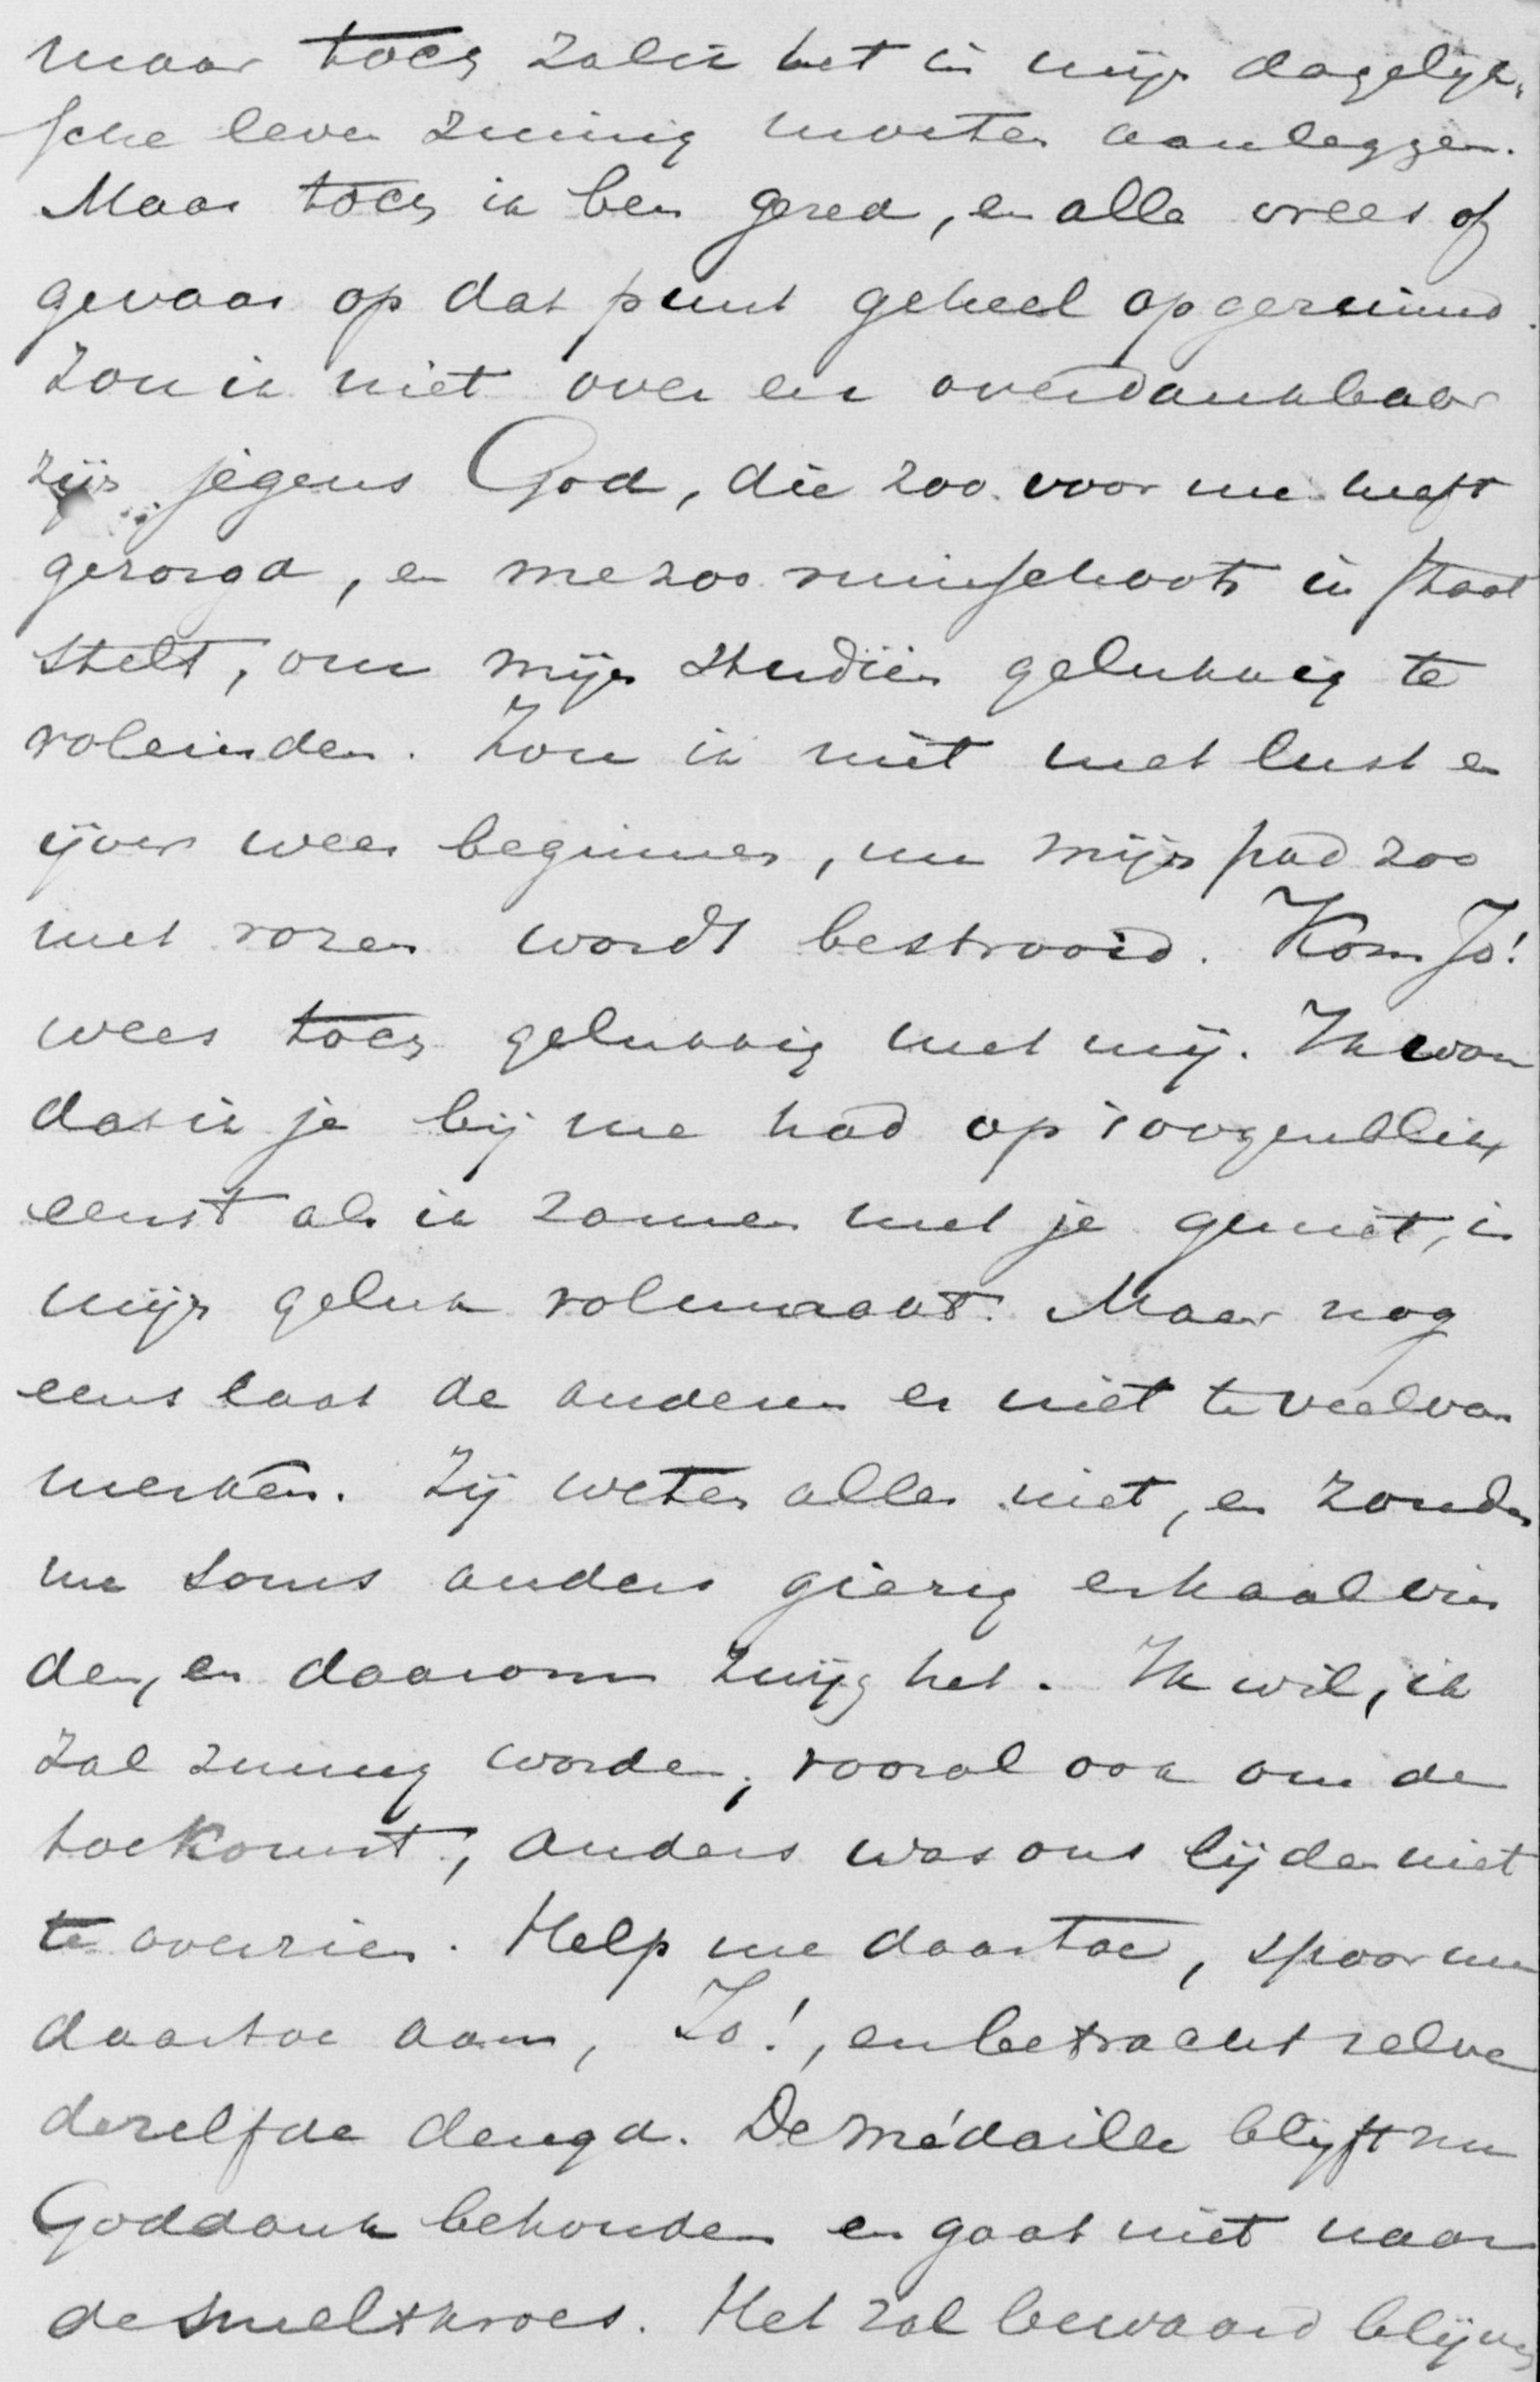 maar toch zal ik het in mijn dagelijk-
sche leven zuinig moeten aanleggen.
Maar toch ik ben gered, en alle vrees of
gevaar op dat punt geheel opgeruimd.
Zou ik niet over en overdankbaar
zijn jegens God, die zoo voor me heeft
gezorgd, en me zoo ruimschoots in staat
stelt, om mijn studiën gelukkig te
voleinden. Zou ik niet met lust en
ijver weer beginnen, nu mijn pad zoo
met rozen wordt bestrooid. Kom Jo!
wees toch gelukkig met mij. Ik wou
dat ik je bij me had op 's oogenblik
eerst als ik samen met je geniet, is
mijn geluk volmaakt. Maar nog
eens laat de anderen er niet te veel van
merken. Zij weten alles niet, en zouden
me soms anders gierig en kaal vin
den, en daarom zwijg het. Ik wil, ik
zal zuinig worden, vooral ook om de
toekomst, anders was ons lijden niet
te overzien. Help me daartoe, spoor me
daartoe aan, Jo!, en betracht zelve
dezelfde deugd. De médaille blijft nu
Goddank behouden en gaat niet naar
de smeltkroes. Het zal bewaard blijven